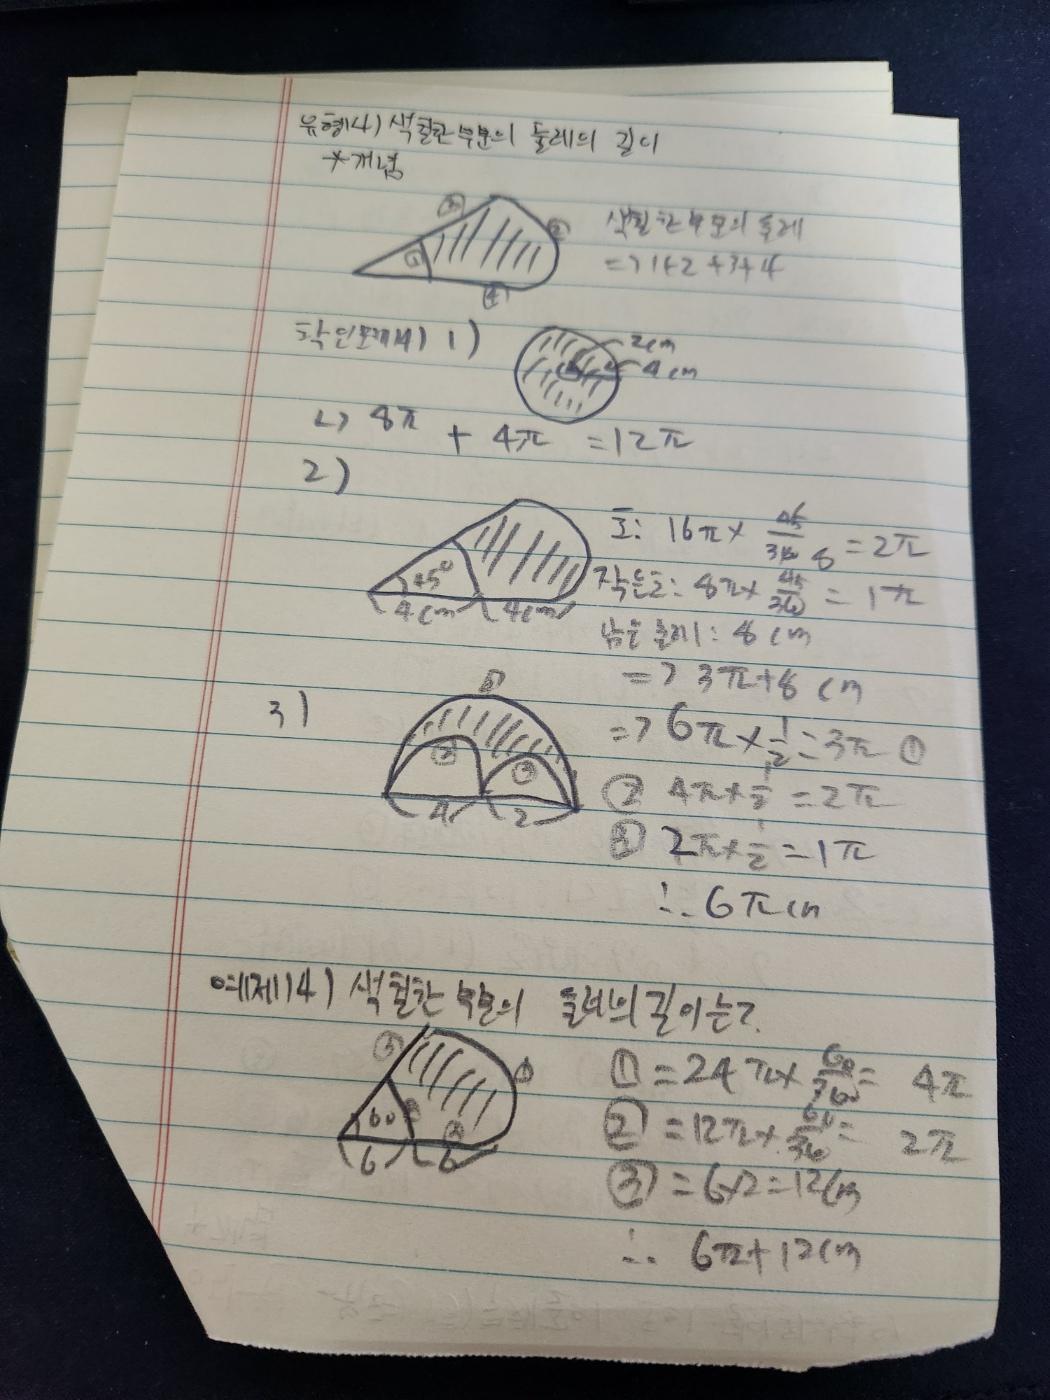 유형14) 색칠한 부분의 둘레의 길이
*개념
③ ② ① ④
색칠한 부분의 둘레
=> 1+2+3+4
확인문제14) 1)
2cm
4cm
↳ 8π + 4π = 12π
2)
45°
4cm 4cm
호: 16π × 45/360 8 = 2π
작은호: 8π × 45/360 = 1π
남은 둘레: 8cm
=> 3π+8 cm
3)
① ② ③
4 2
=> 6π × 1/2 = 3π ①
② 4π × 1/2 = 2π
③ 2π × 1/2 = 1π
∴ 6π cm
예제14) 색칠한 부분의 둘레의 길이는?
③ ① 60 ②
6 6
① = 24π × 60/360 = 4π
② = 12π × 60/360 = 2π
③ = 6×2 = 12cm
∴ 6π+12cm